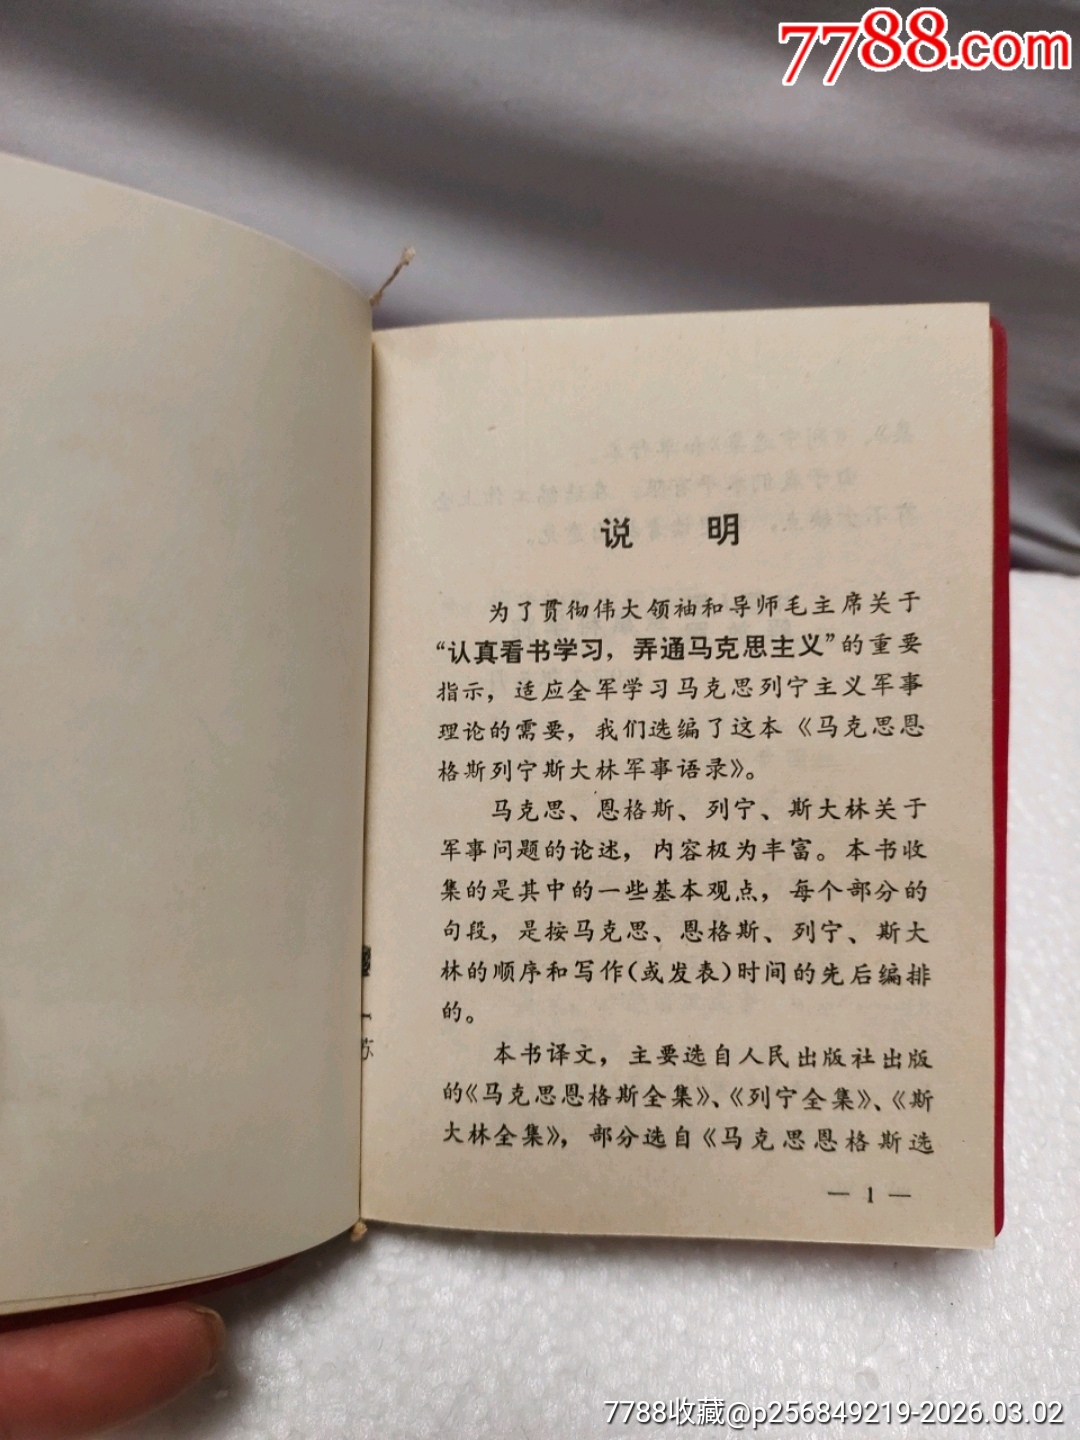 7788.com
说 明
为了贯彻伟大领袖和导师毛主席关于
“认真看书学习，弄通马克思主义”的重要
指示，适应全军学习马克思列宁主义军事
理论的需要，我们选编了这本《马克思恩
格斯列宁斯大林军事语录》。
马克思、恩格斯、列宁、斯大林关于
军事问题的论述，内容极为丰富。本书收
集的是其中的一些基本观点，每个部分的
句段，是按马克思、恩格斯、列宁、斯大
林的顺序和写作(或发表)时间的先后编排
的。
本书译文，主要选自人民出版社出版
的《马克思恩格斯全集》、《列宁全集》、《斯
大林全集》，部分选自《马克思恩格斯选
— 1 —
7788收藏@p256849219-2026.03.02